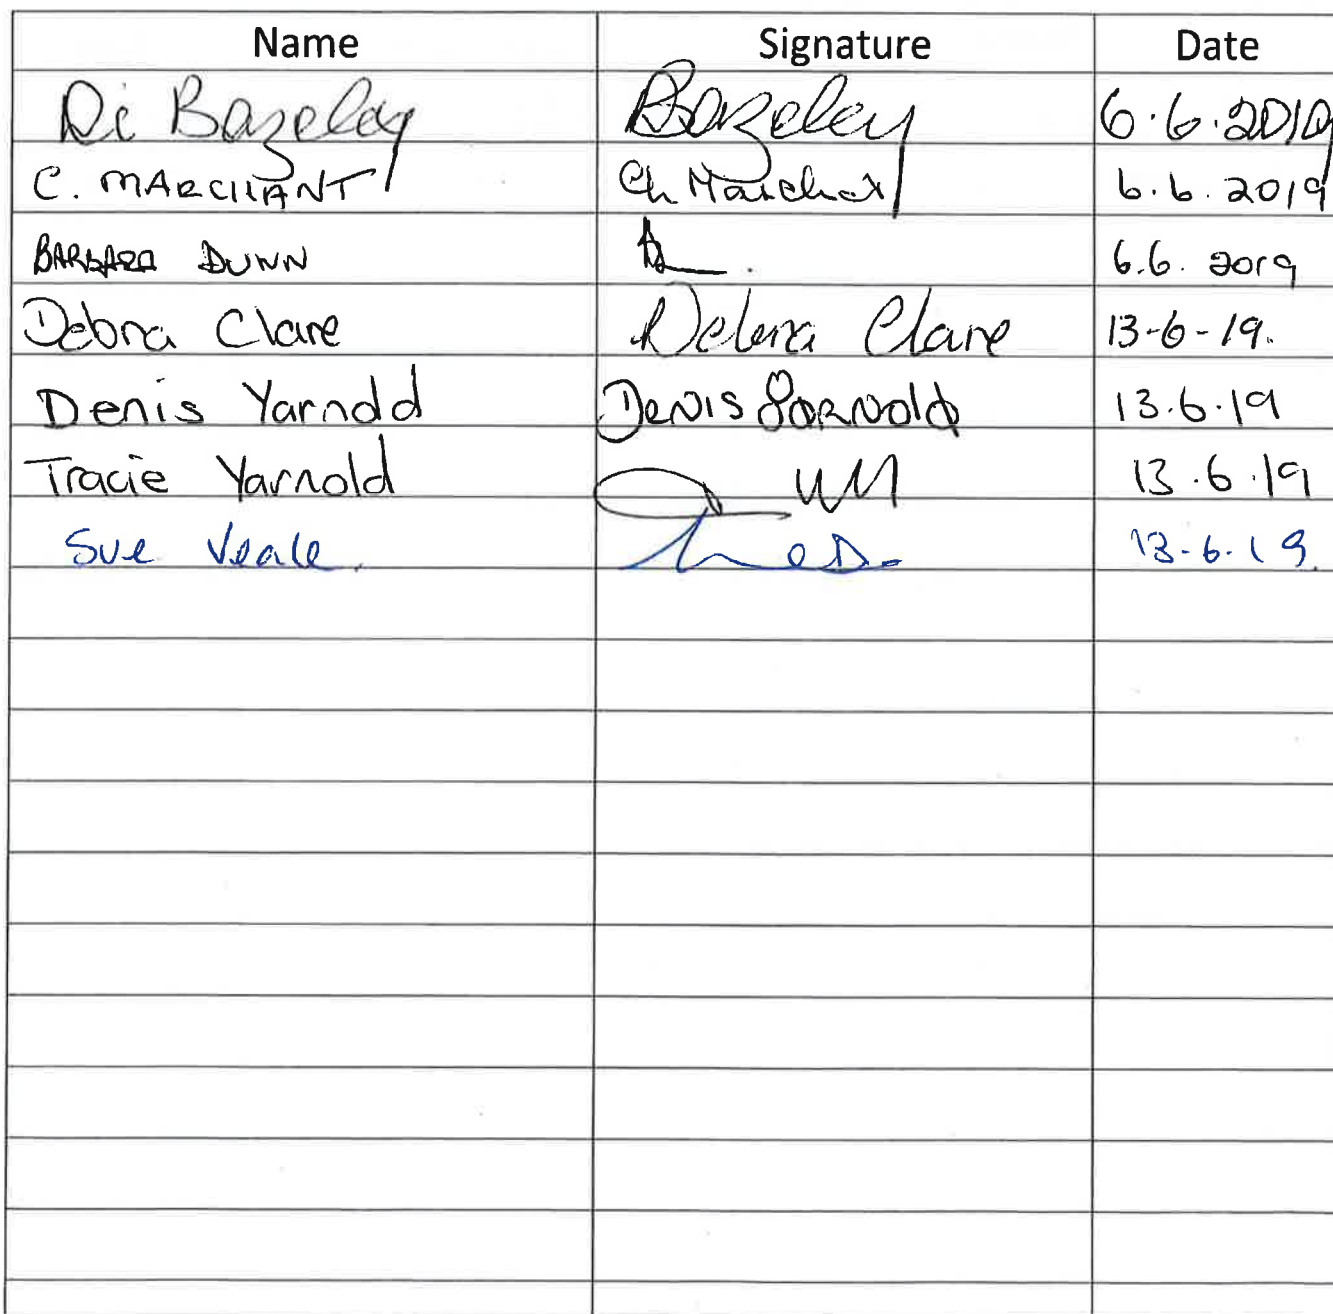 Name Signature Date
Di Bazeley Bazeley 6.6.2019
C. MARCHANT Ch Marchant 6.6.2019
BARBARA DUNN 6.6.2019
Debra Clare Debra Clare 13-6-19.
Denis Yarnold Denis Yarnold 13.6.19
Tracie Yarnold 13.6.19
Sue Veale. 13-6-19.